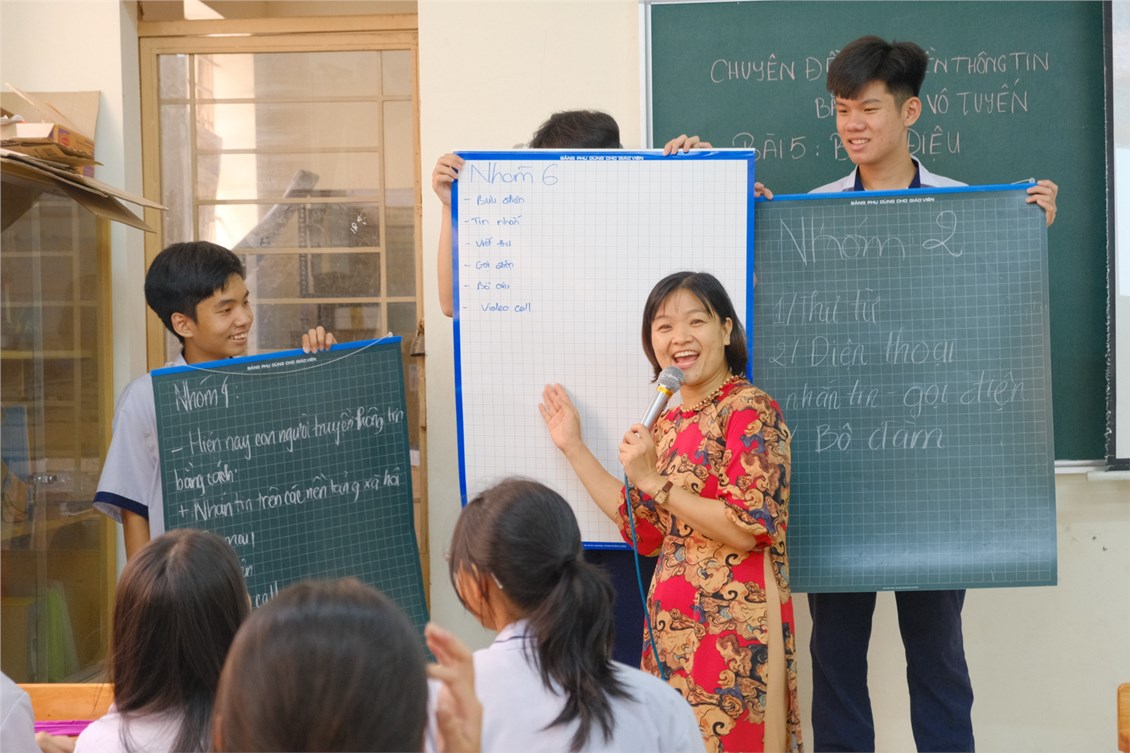 CHUYÊN ĐỀ ỀN THÔNG TIN
VÔ TUYẾN
BÀI 5 : ĐIỆU
BẢNG PHỤ DÙNG CHO GIÁO VIÊN
Nhóm 6
- Bưu điện
- Tin nhắn
- Viết thư
- Gọi điện
- Bồ câu
- Video call
BẢNG PHỤ DÙNG CHO GIÁO VIÊN
Nhóm 2
1/ Thư từ
2/ Điện thoại
nhắn tin gọi điện
Bộ đàm
BẢNG PHỤ DÙNG CHO GIÁO VIÊN
Nhóm 4
- Hiện nay con người truyền thông tin
bằng cách:
+ Nhắn tin trên các nền tảng xã hội
call